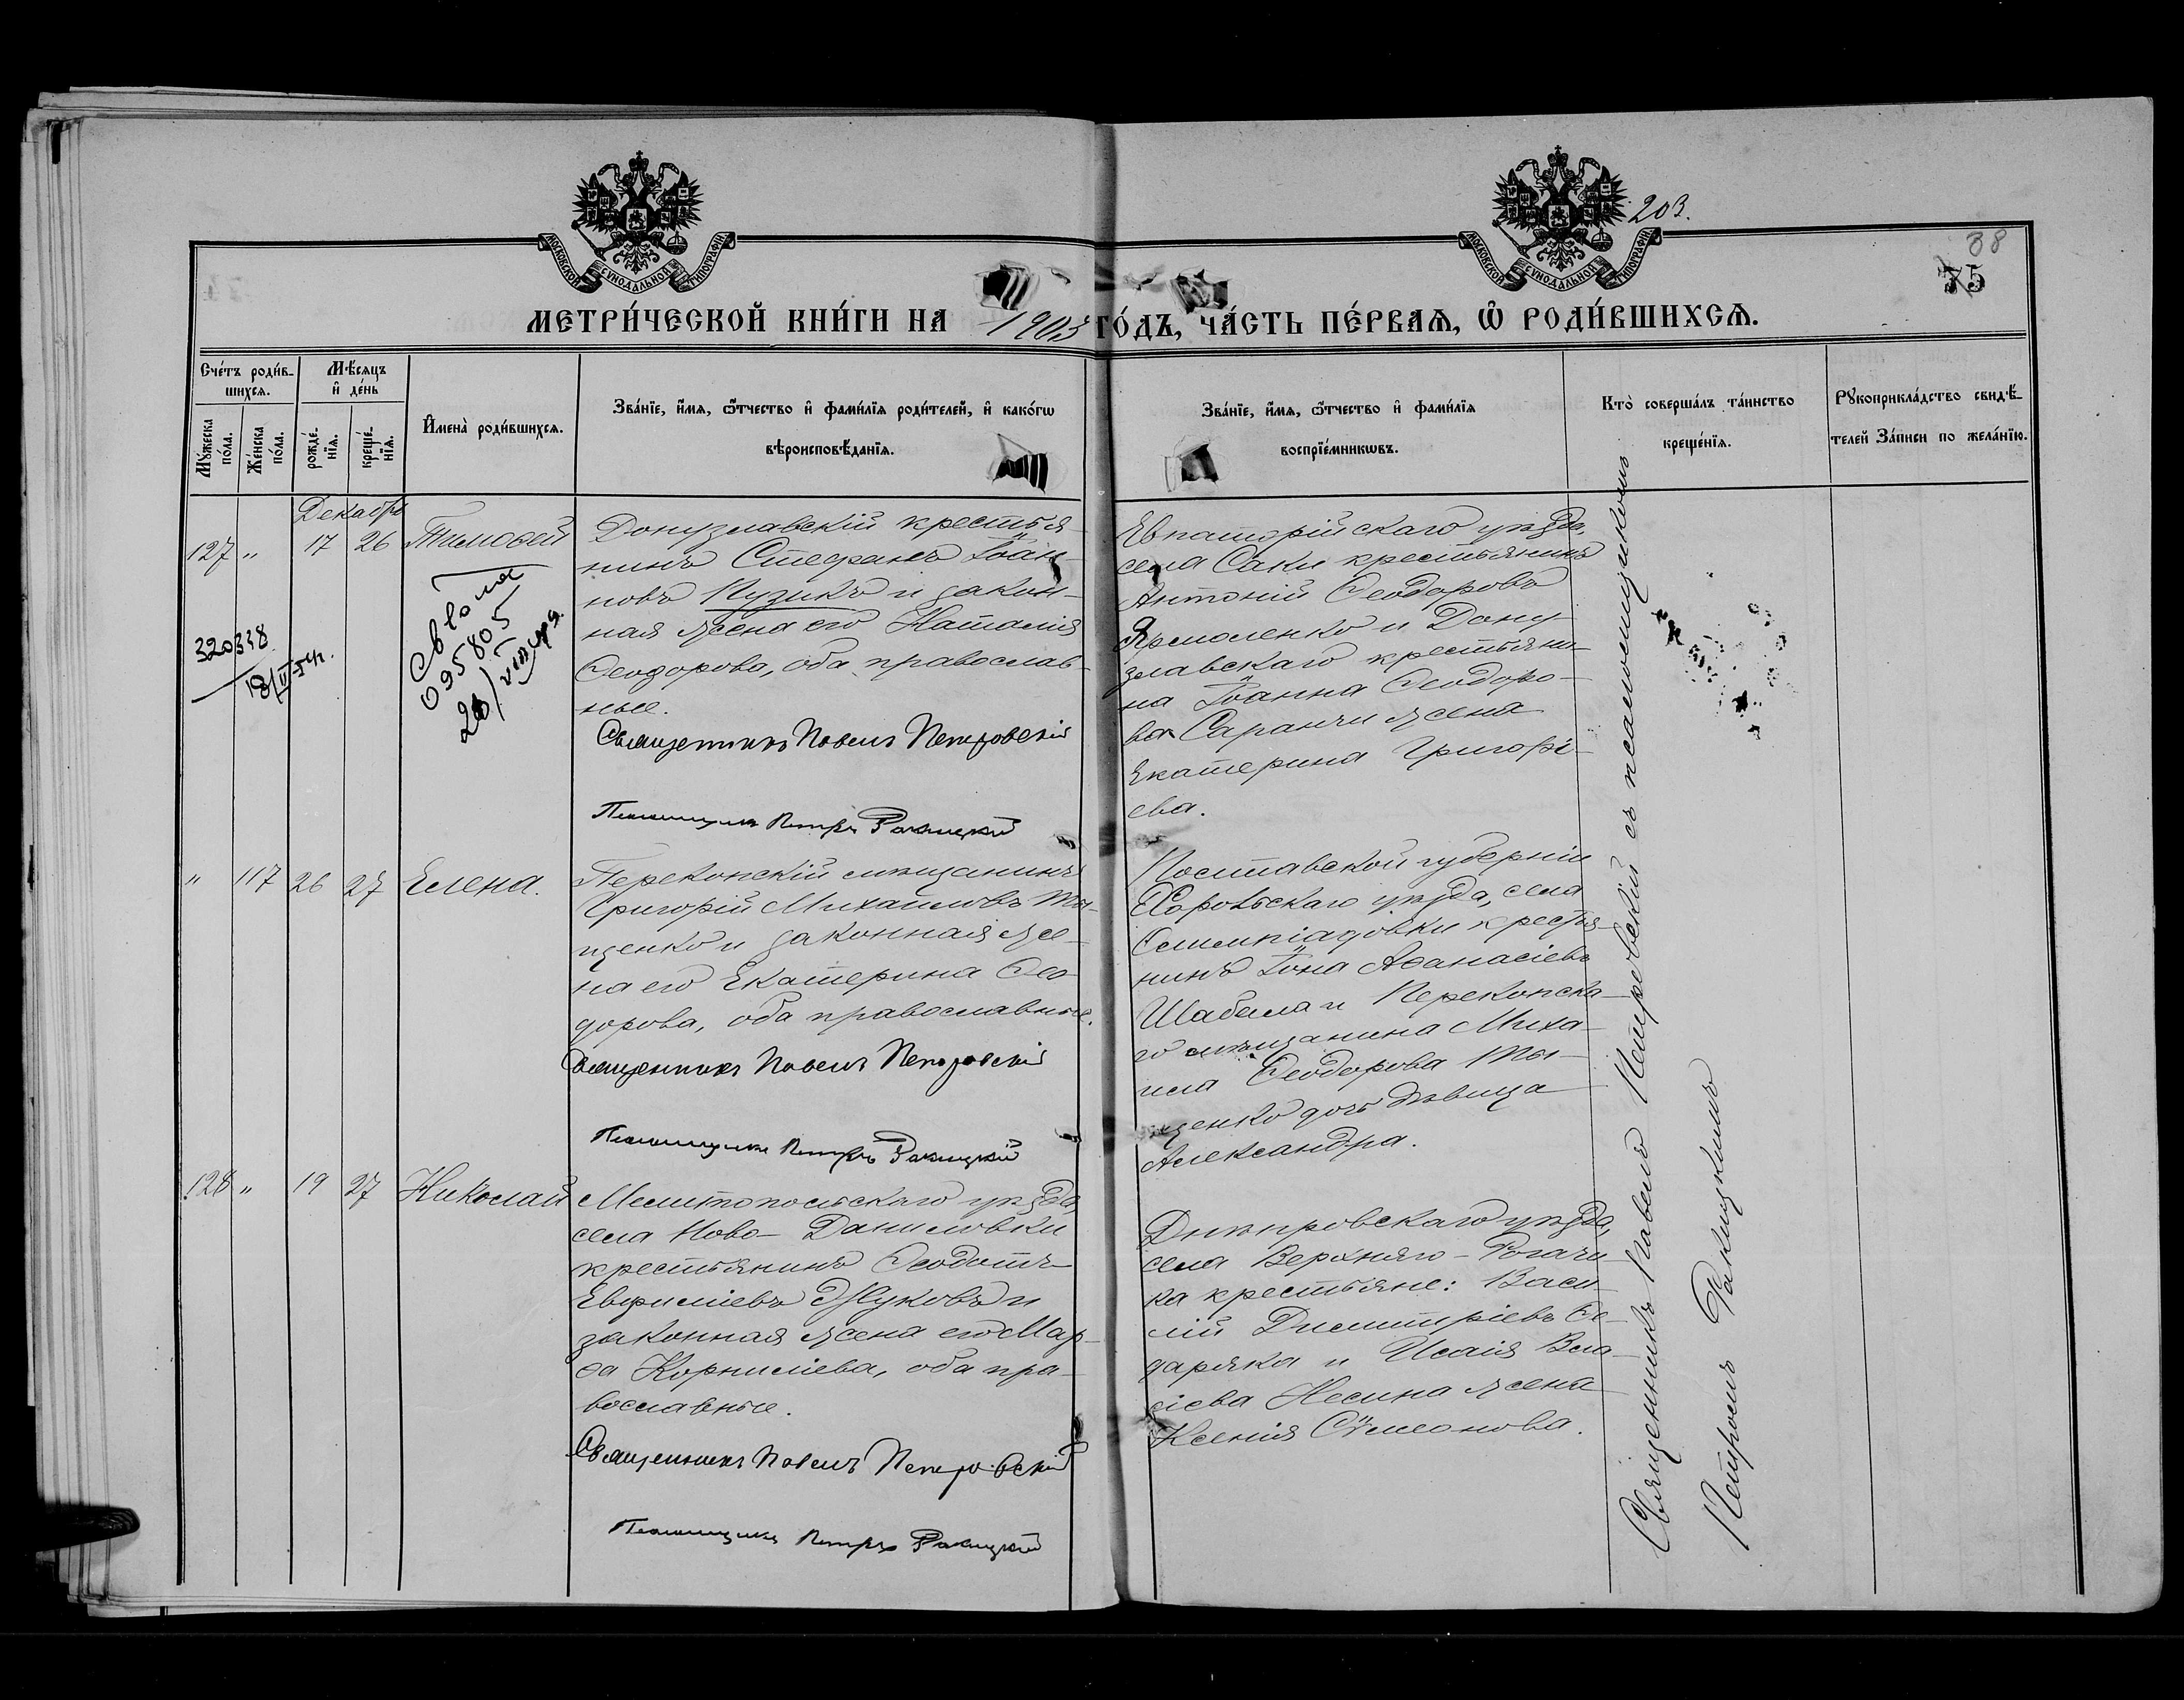 МОСКОВСКОЙ СѴНОДАЛЬНОЙ ТИПОГРАФІИ
МОСКОВСКОЙ СѴНОДАЛЬНОЙ ТИПОГРАФІИ
203.
38
75
МЕТРИ́ЧЕСКОЙ КНИ́ГИ НА 1903 ГО́ДЪ, ЧА́СТЬ ПЕ́РВАѦ, Ѽ РОДИ́ВШИХСѦ.
Сче́тъ роди́в-
шихся.
Мꙋ́жеска по́ла.
Же́нска по́ла.
Мѣ́сяцъ
и҆ де́нь
рожде́-
нїѧ.
креще́-
нїѧ.
И҆мена̀ роди́вшихсѧ.
Зва́нїе, и҆́мѧ, ѻ҆́тчество и҆ фами́лїѧ роди́телей, и҆ како́гѡ
вѣроисповѣ́данїѧ.
Зва́нїе, и҆́мѧ, ѻ҆́тчество и҆ фами́лїѧ
воспрїе́мникѡвъ.
Кто̀ соверша́лъ та́инство
креще́нїѧ.
Рꙋкоприкла́дство свидѣ́-
телей за́писи по жела́нїю.
Декабрь
127 " 17 26 Тимоѳей
320338
Св-во №
095805
Донузлавскій крестья-
нинъ Стефанъ Іоан-
новъ Кузикъ и закон-
ная жена его Наталія
Ѳеодорова, оба православ-
ные.
Священникъ Павелъ Петровскій
Псаломщикъ Петръ Ракицкій
Евпаторійскаго уѣзда,
села Саки крестьянинъ
Антоній Ѳеодоровъ
Ярмоленко и Дону-
злавскаго крестьяни-
на Іоанна Ѳеодоро-
ва Саранчи жена
Екатерина Григорі-
ева.
" 117 26 27 Елена.
Перекопскій мѣщанинъ
Григорій Михаиловъ Ты-
щенко и законная же-
на его Екатерина Ѳео-
дорова, оба православные.
Священникъ Павелъ Петровскій
Псаломщикъ Петръ Ракицкій
Полтавской губерніи
Хорольскаго уѣзда, села
Олимпіадовки крестья-
нинъ Іона Аѳанасіевъ
Шабала и Перекопска-
го мѣщанина Миха-
ила Ѳеодорова Ты-
щенко дочь дѣвица
Александра.
128 " 19 27 Николай
Мелитопольскаго уѣзда,
села Ново-Даниловки
крестьянинъ Ѳеодотъ
Евфиміевъ Жуковъ и
законная жена его Мар-
ѳа Корниліева, оба пра-
вославные.
Священникъ Павелъ Петровскій
Псаломщикъ Петръ Ракицкій
Днѣпровскаго уѣзда,
села Верхняго-Рогачи-
ка крестьяне: Васи-
лій Димитріевъ Ѳе-
даряка и Исаія Вла-
сіева Несина жена
Ксенія Сѵмеонова.
Священникъ Павелъ Петровскій съ псаломщикомъ
Петромъ Ракицкимъ